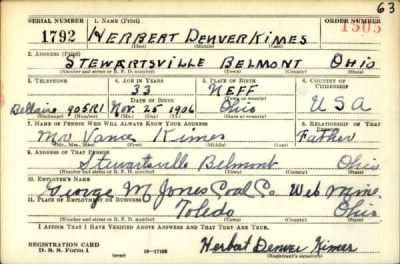 63
SERIAL NUMBER 1. NAME (Print) ORDER NUMBER
1792 HERBERT DENVER KIMES 1505
(First) (Middle) (Last)
2. ADDRESS (Print)
STEWARTSVILLE BELMONT OHIO
(Number and street or R. F. D. number) (Town) (County) (State)
3. TELEPHONE 4. AGE IN YEARS 5. PLACE OF BIRTH 6. COUNTRY OF CITIZENSHIP
33 NEFF
DATE OF BIRTH (Town or county)
Bellaire 905R1 Nov. 25 1906 Ohio USA
(Exchange) (Number) (Mo.) (Day) (Yr.) (State or country)
7. NAME OF PERSON WHO WILL ALWAYS KNOW YOUR ADDRESS 8. RELATIONSHIP OF THAT PERSON
Mr Vance Kimes Father
(Mr., Mrs., Miss) (First) (Middle) (Last)
9. ADDRESS OF THAT PERSON
Stewartsville Belmont Ohio
(Number and street or R. F. D. number) (Town) (County) (State)
10. EMPLOYER'S NAME
George M Jones Coal Co. Web Mine
11. PLACE OF EMPLOYMENT OR BUSINESS
Toledo Ohio
(Number and street or R. F. D. number) (Town) (County) (State)
I AFFIRM THAT I HAVE VERIFIED ABOVE ANSWERS AND THAT THEY ARE TRUE.
REGISTRATION CARD
D. S. S. Form 1 16—17105 Herbert Denver Kimes
(Registrant's signature)